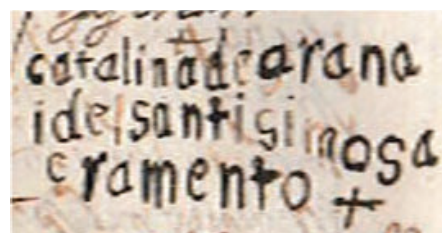 catalinadearana
idelsantisimosa
cramento +